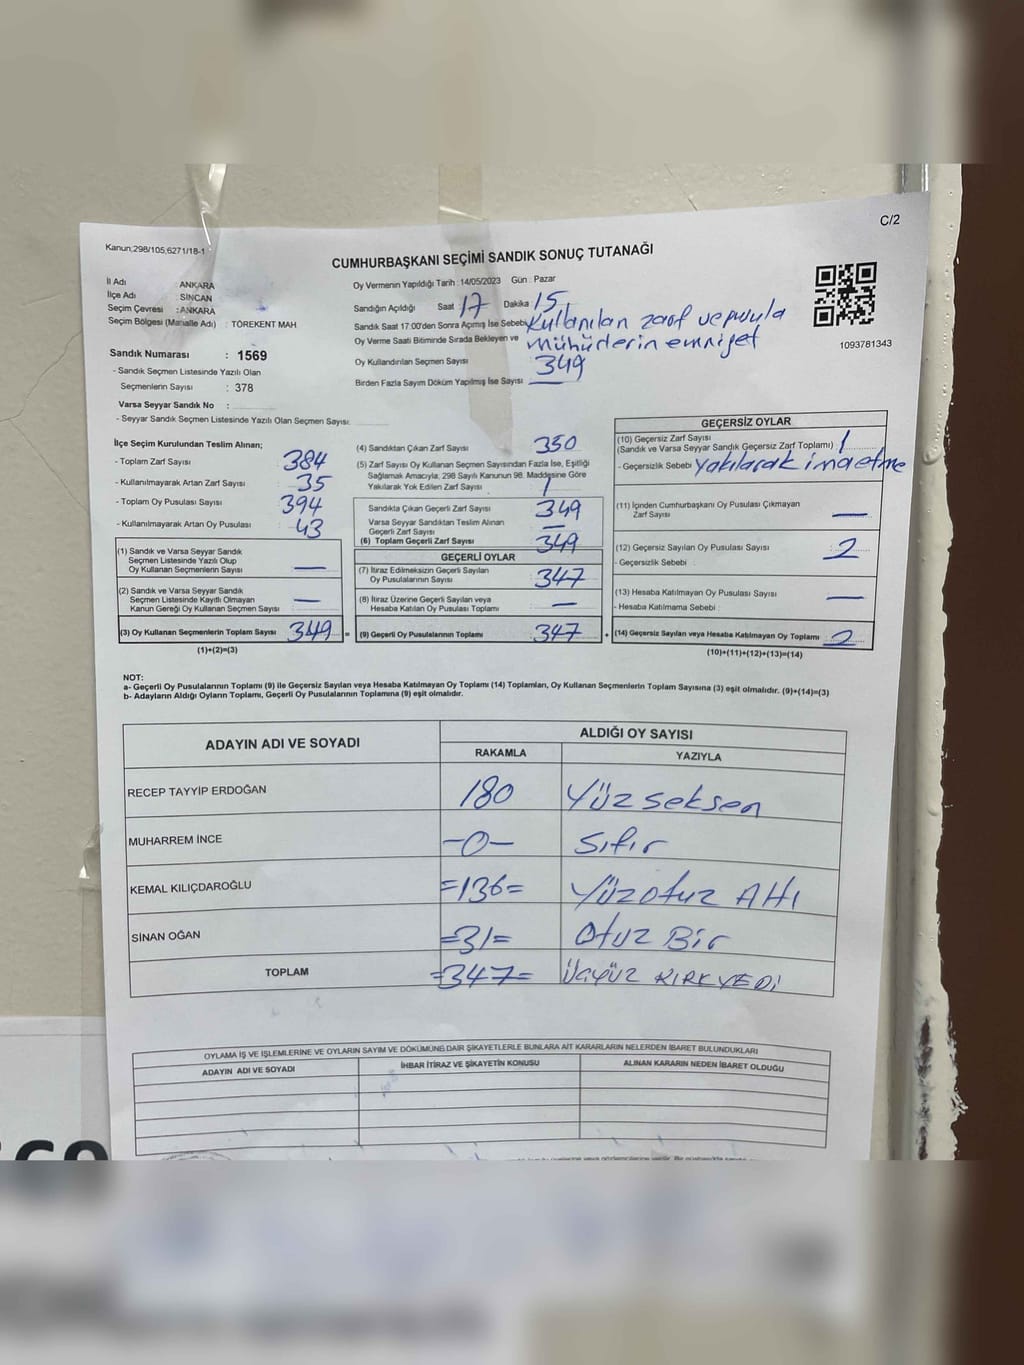 C/2
Kanun;298/105,6271/18-1
CUMHURBAŞKANI SEÇİMİ SANDIK SONUÇ TUTANAĞI
İl Adı : ANKARA
İlçe Adı : SİNCAN
Seçim Çevresi : ANKARA
Seçim Bölgesi (Mahalle Adı) : TÖREKENT MAH
Sandık Numarası : 1569
- Sandık Seçmen Listesinde Yazılı Olan
Seçmenlerin Sayısı : 378
Varsa Seyyar Sandık No :
- Seyyar Sandık Seçmen Listesinde Yazılı Olan Seçmen Sayısı:
Oy Vermenin Yapıldığı Tarih : 14/05/2023 Gün : Pazar
Sandığın Açıldığı Saat 17 Dakika 15
Sandık Saat 17.00'den Sonra Açımış İse Sebebi Kullanılan zarf ve pusula
Oy Verme Saati Bitiminde Sırada Bekleyen ve mühürlerin emniyet
Oy Kullandırılan Seçmen Sayısı 349
Birden Fazla Sayım Döküm Yapılmış İse Sayısı —
1093781343
İlçe Seçim Kurulundan Teslim Alınan;
- Toplam Zarf Sayısı 384
- Kullanılmayarak Artan Zarf Sayısı 35
- Toplam Oy Pusulası Sayısı 394
- Kullanılmayarak Artan Oy Pusulası 43
(1) Sandık ve Varsa Seyyar Sandık
Seçmen Listesinde Yazılı Olup
Oy Kullanan Seçmenlerin Sayısı —
(2) Sandık ve Varsa Seyyar Sandık
Seçmen Listesinde Kayıtlı Olmayan
Kanun Gereği Oy Kullanan Seçmen Sayısı —
(3) Oy Kullanan Seçmenlerin Toplam Sayısı 349 =
(1)+(2)=(3)
(4) Sandıktan Çıkan Zarf Sayısı 350
(5) Zarf Sayısı Oy Kullanan Seçmen Sayısından Fazla İse, Eşitliği
Sağlamak Amacıyla, 298 Sayılı Kanunun 98. Maddesine Göre
Yakılarak Yok Edilen Zarf Sayısı 1
Sandıkta Çıkan Geçerli Zarf Sayısı 349
Varsa Seyyar Sandıktan Teslim Alınan
Geçerli Zarf Sayısı —
(6) Toplam Geçerli Zarf Sayısı 349
GEÇERLİ OYLAR
(7) İtiraz Edilmeksizin Geçerli Sayılan
Oy Pusulalarının Sayısı 347
(8) İtiraz Üzerine Geçerli Sayılan veya
Hesaba Katılan Oy Pusulası Toplamı —
(9) Geçerli Oy Pusulalarının Toplamı 347 +
GEÇERSİZ OYLAR
(10) Geçersiz Zarf Sayısı 1
(Sandık ve Varsa Seyyar Sandık Geçersiz Zarf Toplamı)
- Geçersizlik Sebebi yakılarak imaetme
(11) İçinden Cumhurbaşkanı Oy Pusulası Çıkmayan
Zarf Sayısı —
(12) Geçersiz Sayılan Oy Pusulası Sayısı 2
- Geçersizlik Sebebi :
(13) Hesaba Katılmayan Oy Pusulası Sayısı —
- Hesaba Katılmama Sebebi :
(14) Geçersiz Sayılan veya Hesaba Katılmayan Oy Toplamı 2
(10)+(11)+(12)+(13)=(14)
NOT:
a- Geçerli Oy Pusulalarının Toplamı (9) ile Geçersiz Sayılan veya Hesaba Katılmayan Oy Toplamı (14) Toplamları, Oy Kullanan Seçmenlerin Toplam Sayısına (3) eşit olmalıdır. (9)+(14)=(3)
b- Adayların Aldığı Oyların Toplamı, Geçerli Oy Pusulalarının Toplamına (9) eşit olmalıdır.
ADAYIN ADI VE SOYADI
ALDIĞI OY SAYISI
RAKAMLA YAZIYLA
RECEP TAYYİP ERDOĞAN 180 Yüz seksen
MUHARREM İNCE -0- Sıfır
KEMAL KILIÇDAROĞLU =136= Yüzotuz Altı
SİNAN OĞAN =31= Otuz Bir
TOPLAM =347= Üçyüz KIRKYEDİ
OYLAMA İŞ VE İŞLEMLERİNE VE OYLARIN SAYIM VE DÖKÜMÜNE DAİR ŞİKAYETLERLE BUNLARA AİT KARARLARIN NELERDEN İBARET BULUNDUKLARI
ADAYIN ADI VE SOYADI İHBAR İTİRAZ VE ŞİKAYETİN KONUSU ALINAN KARARIN NEDEN İBARET OLDUĞU